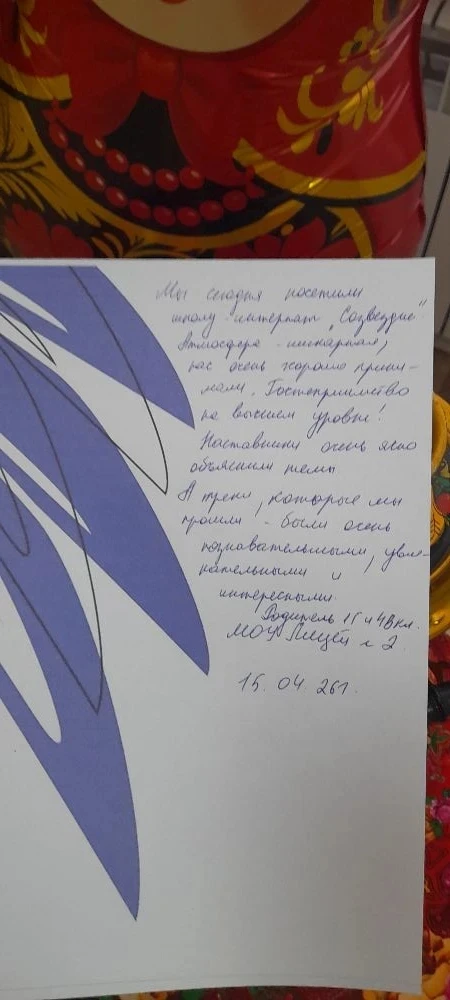 Мы сегодня посетили
школу-интернат "Созвездие".
Атмосфера - шикарная,
нас очень хорошо прини-
мали. Гостеприимство
на высшем уровне!
Наставники очень ясно
объяснили темы
А треки, которые мы
прошли - были очень
познавательными, увле-
кательными и
интересными.
Родитель 1Г и 4В кл.
МОУ Лицей № 2
15. 04. 26г.